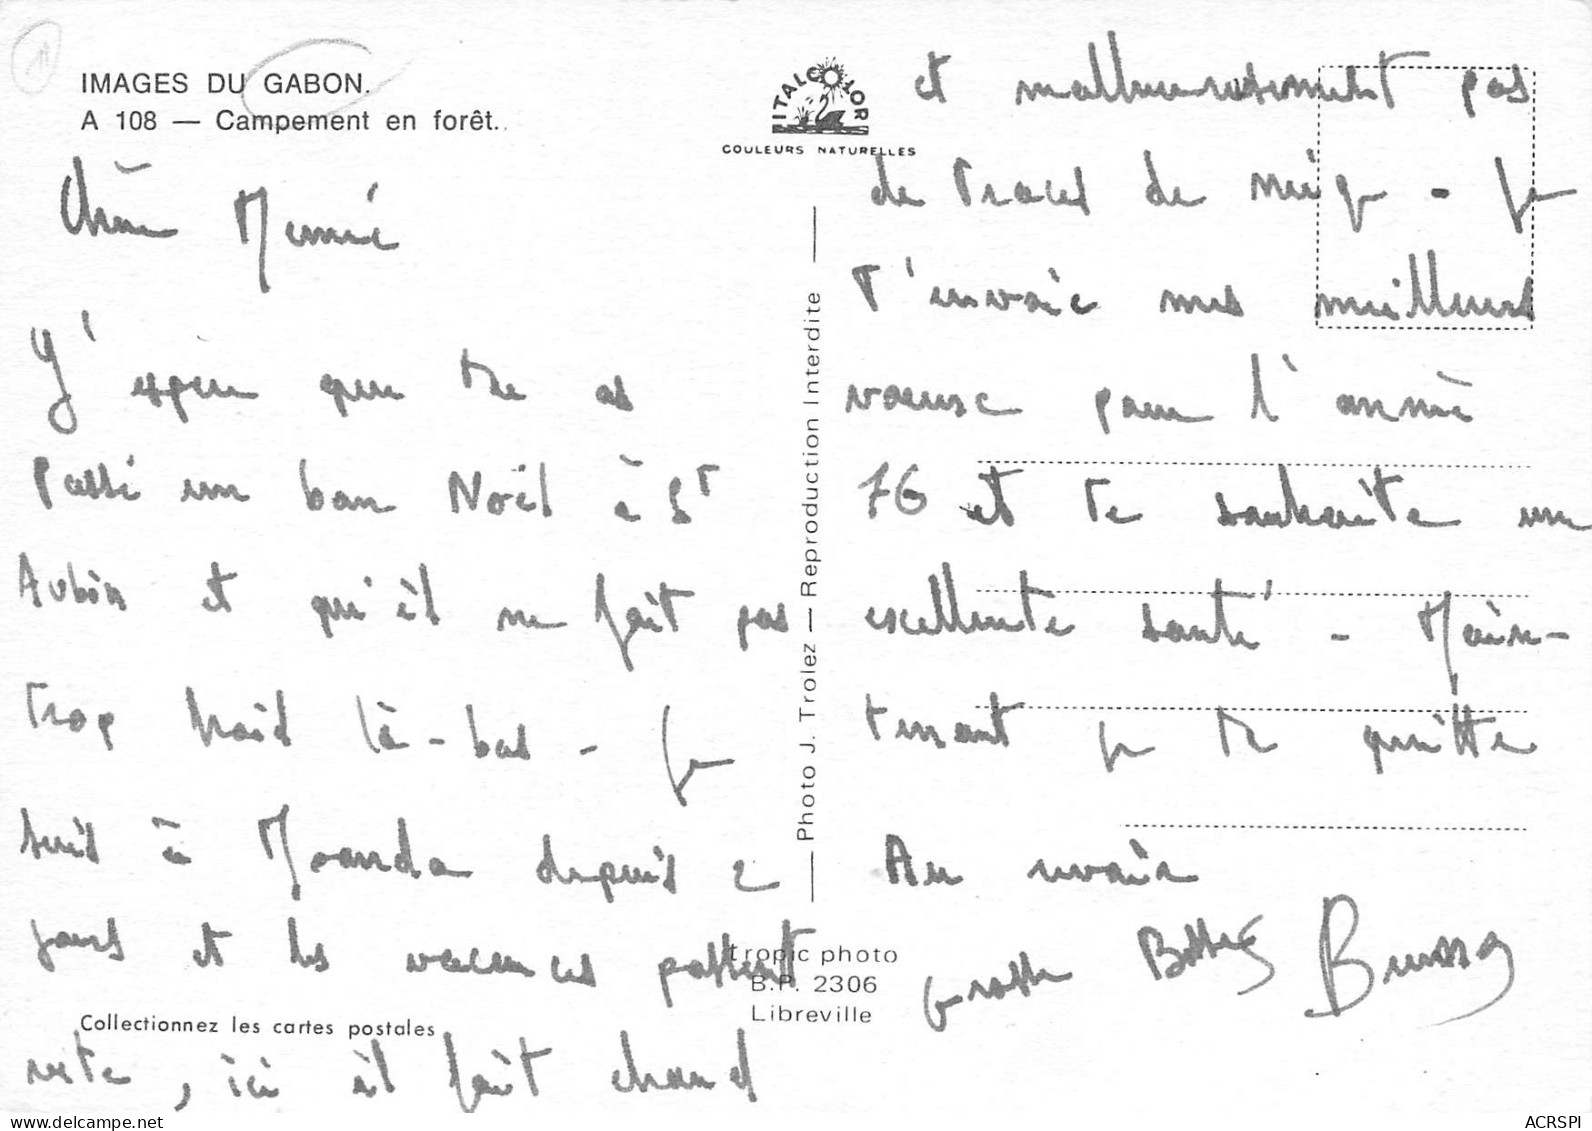 IMAGES DU GABON.
A 108 — Campement en forêt..
ITALCOLOR
COULEURS NATURELLES
Chère Memé
J'espere que tu as
passé un bon Noël à St
Aubin et qu'il ne fait pas
trop froid là-bas - Je
suis à Moanda depuis 2
jours et les vacances passent
vite, ici il fait chaud
et malheureusement pas
de traces de neige - Je
t'envoie mes meilleurs
voeuse pour l'année
76 et te souhaite un
excellente santé - Main-
tenant je te quitte
Au revoir
grosse Bises Bruno
Photo J. Trolez — Reproduction Interdite
tropic photo
B.P. 2306
Libreville
Collectionnez les cartes postales
ACRSPI